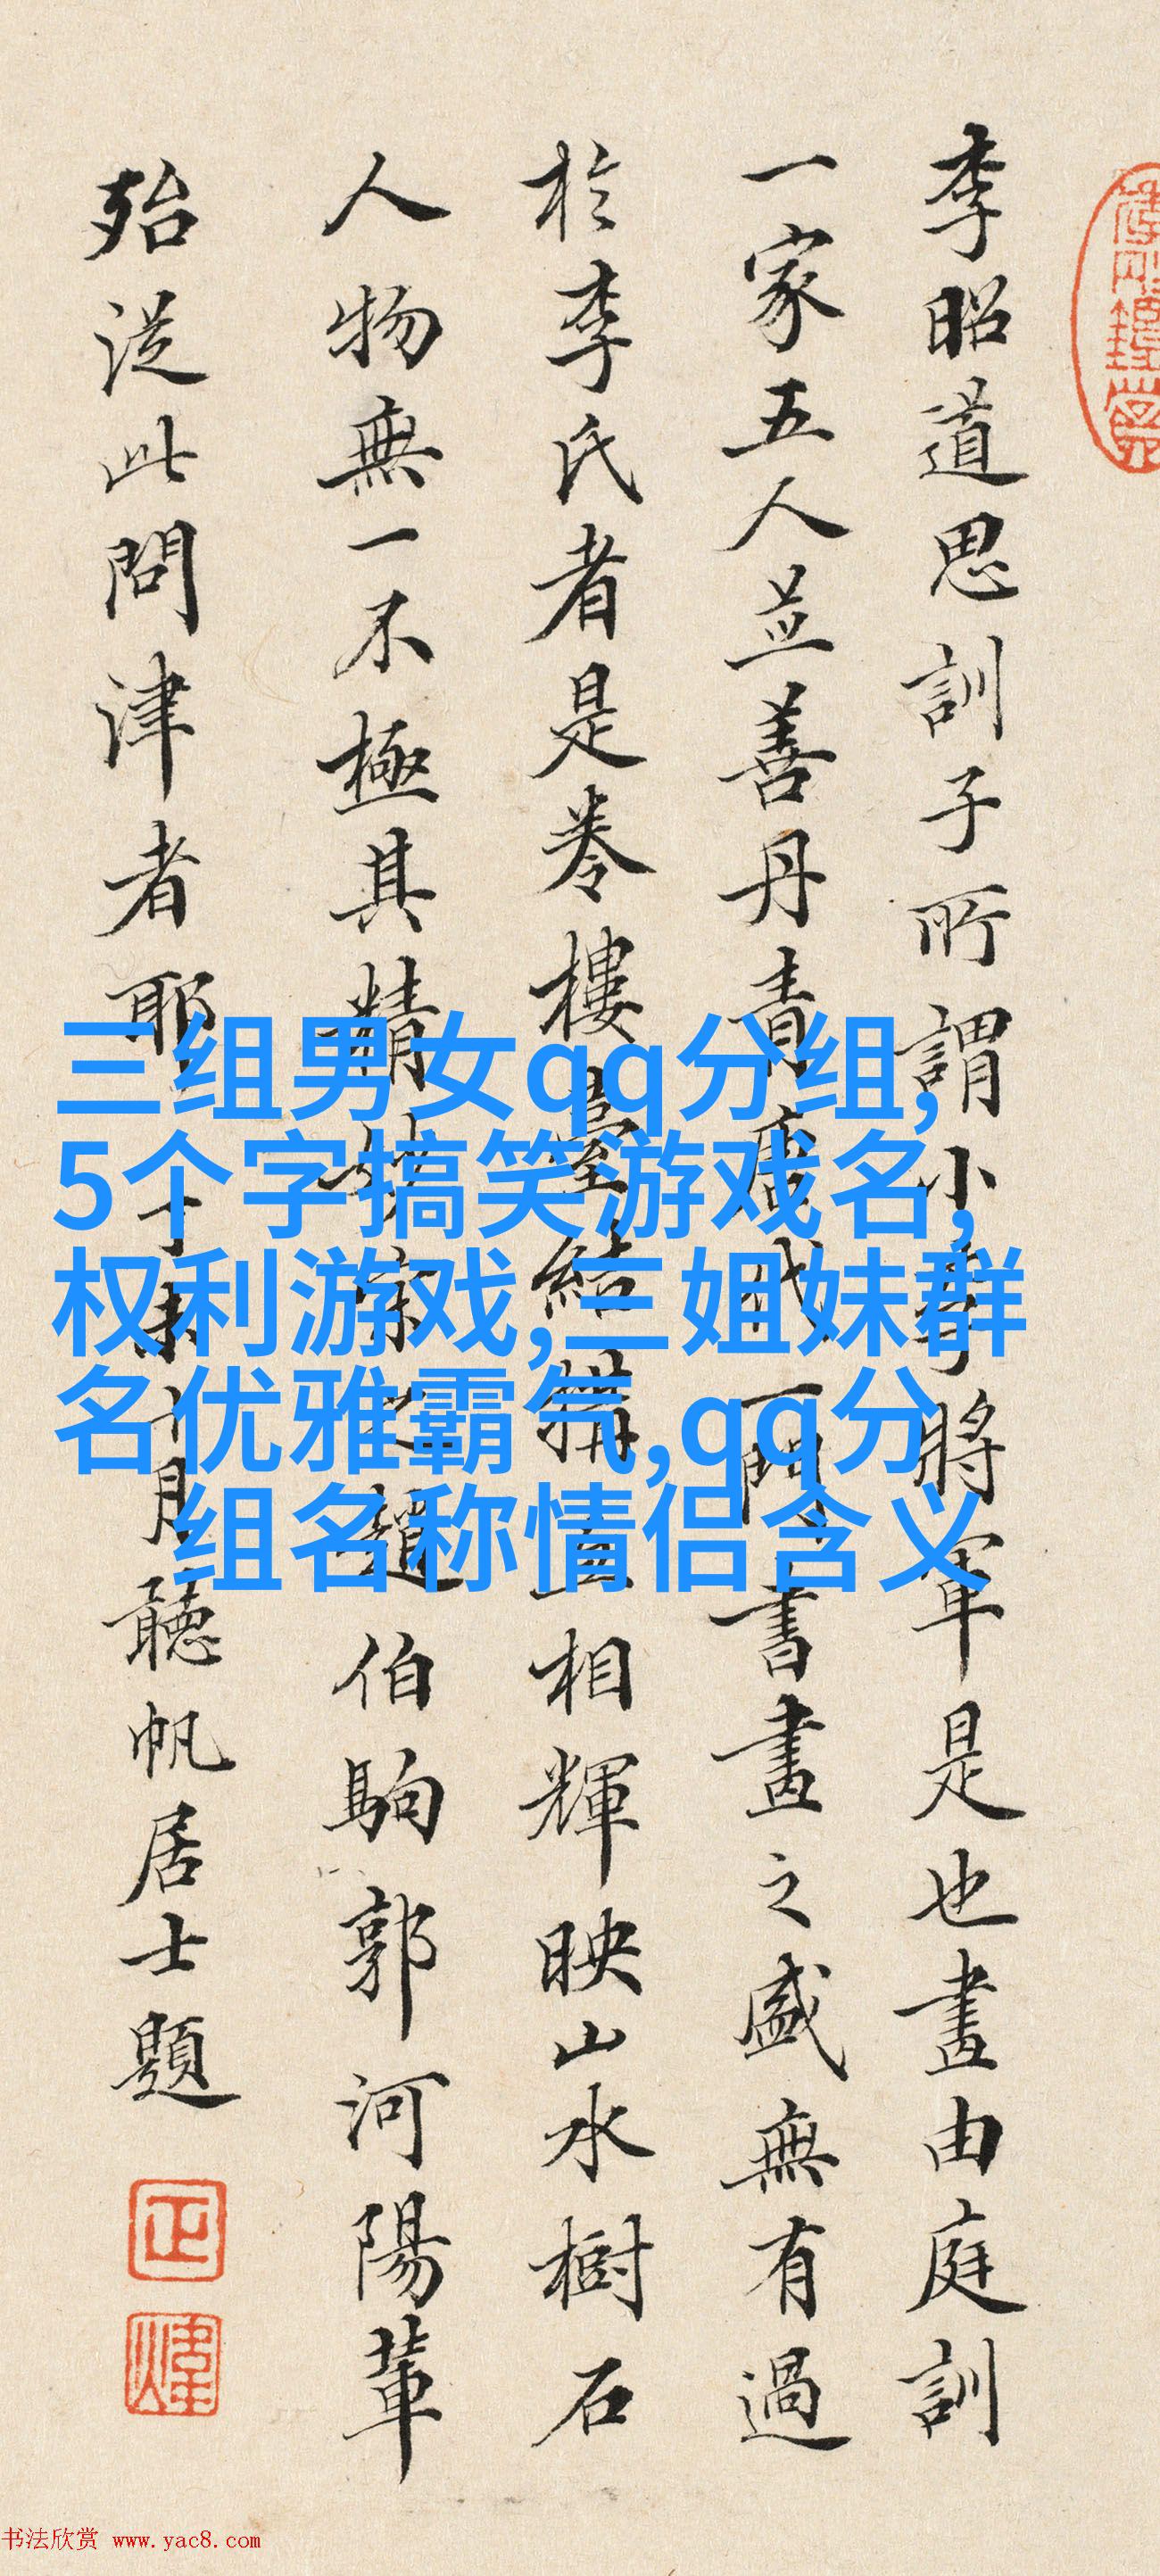 李昭道思訓子所謂小李將軍是也畫由庭訓
一家五人並善丹青唐代一門書畫之盛無有過
於李氏者是卷樓臺結構互相輝映山水樹石
人物無一不極其精妙宋之趙伯駒郭河陽輩
殆從此問津者耶丁未月聽帆居士題
正
煒
三组男女qq分组,
5个字搞笑游戏名,
权利游戏,三姐妹群
名优雅霸气,qq分
组名称情侣含义
书法欣赏 www.yac8.com